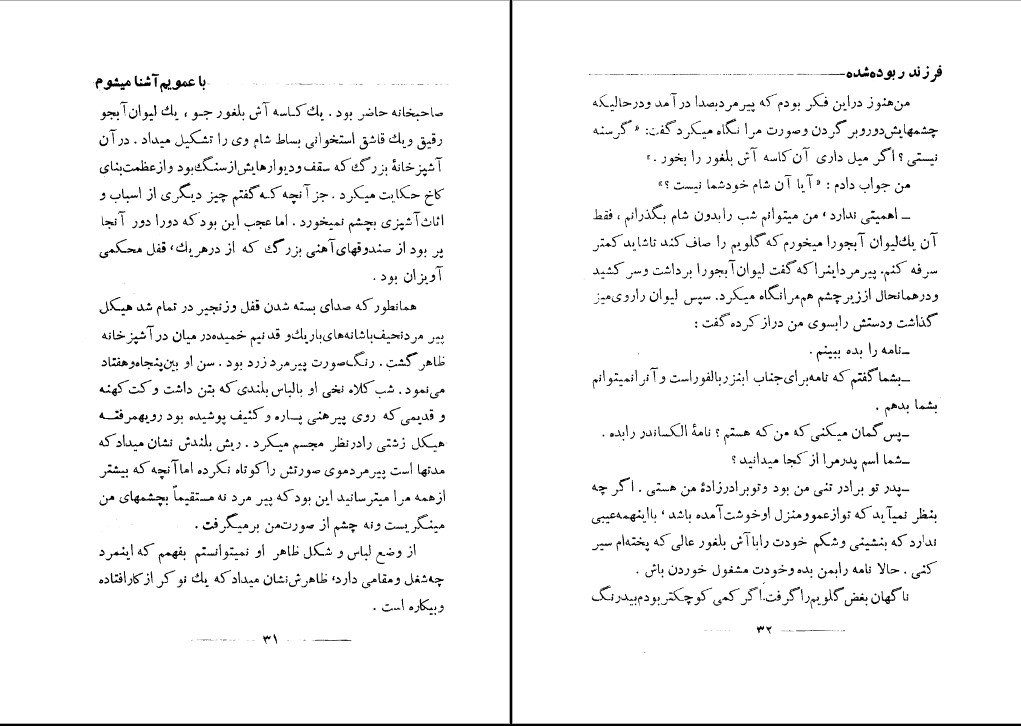 با عمویم آشنا میشوم
صاحبخانه حاضر بود . یك كاسه آش بلغور جـو ، یك لیوان آبجو
رقیق ویك قاشق استخوانی بساط شام وی را تشكیل میداد . در آن
آشپزخانهٔ بزرگ كه سقف ودیوارهایش از سنگ بود و از عظمت بنای
كاخ حكایت میكرد . جز آنچه كـه گفتم چیز دیگری از اسباب و
اثاث آشپزی بچشم نمیخورد . اما عجب این بود كه دورا دور آنجا
پر بود از صندوقهای آهنی بزرگ كه از درهریك، قفل محكمی
آویزان بود .
همانطور كه صدای بسته شدن قفل وزنجیر در تمام شد هیكل
پیر مرد نحیف باشانه‌های باریك و قد نیم خمیده در میان در آشپزخانه
ظاهر گشت . رنگ صورت پیرمرد زرد بود . سن او بین پنجاه وهفتاد
می‌نمود. شب كلاه نخی او بالباس بلندی كه بتن داشت و كت كهنه
و قدیمی كه روی پیرهنی پــاره و كثیف پوشیده بود رویهمرفتــه
هیكل زشتی را در نظر مجسم میكرد . ریش بلندش نشان میداد كه
مدتها است پیرمرد موی صورتش را كوتاه نكرده اما آنچه كه بیشتر
از همه مرا میترسانید این بود كه پیر مرد نه مستقیماً بچشمهای من
مینگریست ونه چشم از صورت من برمیگرفت .
از وضع لباس و شكل ظاهر او نمیتوانستم بفهمم كه اینمرد
چه شغل ومقامی دارد، ظاهرش نشان میداد كه یك نوكر از كار افتاده
وبیكاره است .
۳۱
فرزند ربوده شده
من هنوز دراین فكر بودم كه پیرمرد بصدا در آمد ودرحالیكه
چشمهایش دوروبر گردن وصورت مرا نگاه میكرد گفت: « گرسنه
نیستی ؟ اگر میل داری آن كاسه آش بلغور را بخور .»
من جواب دادم : « آیا آن شام خودشما نیست ؟»
ــ اهمیتی ندارد، من میتوانم شب را بدون شام بگذرانم ، فقط
آن یك لیوان آبجورا میخورم كه گلویم را صاف كند تا شاید كمتر
سرفه كنم. پیرمرد اینرا كه گفت لیوان آبجورا برداشت وسر كشید
ودرهمانحال از زیر چشم هم مرا نگاه میكرد. سپس لیوان را روی میز
گذاشت ودستش را بسوی من دراز كرده گفت :
ــ نامه را بده ببینم .
ــ بشما گفتم كه نامه برای جناب ابنزر بالفور است و آنرا نمیتوانم
بشما بدهم .
ــ پس گمان میكنی كه من كه هستم ؟ نامهٔ الكساندر را بده .
ــ شما اسم پدر مرا از كجا میدانید ؟
ــ پدر تو برادر تنی من بود وتو برادرزادهٔ من هستی . اگر چه
بنظر نمیآید كه تو از عمو و منزل او خوشت آمده باشد ، با اینهمه عیبی
ندارد كه بنشینی وشكم خودت را با آش بلغور عالی كه پخته‌ام سیر
كنی . حالا نامه را بمن بده وخودت مشغول خوردن باش .
ناگهان بغض گلویم را گرفت. اگر كمی كوچكتر بودم بیدرنگ
۳۲